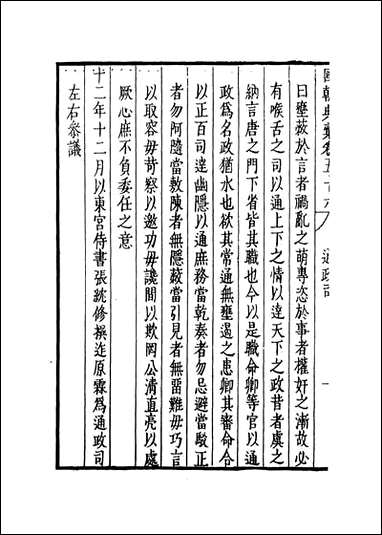 國朝典彙卷五十六 通政司 一
曰壅蔽於言者禍亂之萌專恣於事者權奸之漸故必
有喉舌之司以通上下之情以達天下之政昔者虞之
納言唐之門下省皆其職也今以是職命卿等官以通
政爲名政猶水也欲其常通無壅遏之患卿其審命令
以正百司達幽隱以通庶務當執奏者勿忌避當駁正
者勿阿隨當敷陳者無隱蔽當引見者無留難毋巧言
以取容毋苛察以邀功毋讒間以欺罔公清直亮以處
厥心庶不負委任之意
十二年十二月以東宮侍書張紞修撰迮原霖爲通政司
左右叅議